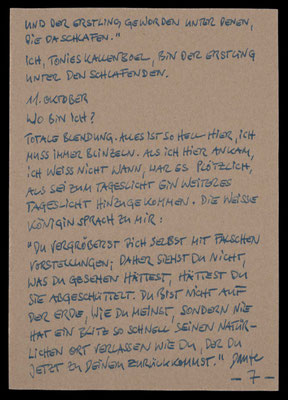 UND DER ERSTLING GEWORDEN UNTER DENEN,
DIE DA SCHLAFEN."
ICH, TÖNIES KALLENBOEL, BIN DER ERSTLING
UNTER DEN SCHLAFENDEN.
11. OKTOBER
WO BIN ICH?
TOTALE BLENDUNG. ALLES IST SO HELL HIER, ICH
MUSS IMMER BLINZELN. ALS ICH HIER ANKAM,
ICH WEISS NICHT WANN, WAR ES PLÖTZLICH,
ALS SEI ZUM TAGESLICHT EIN WEITERES
TAGESLICHT HINZUGEKOMMEN. DIE WEISSE
KÖNIGIN SPRACH ZU MIR:
"DU VERGRÖBERST DICH SELBST MIT FALSCHEN
VORSTELLUNGEN; DAHER SIEHST DU NICHT,
WAS DU GESEHEN HÄTTEST, HÄTTEST DU
SIE ABGESCHÜTTELT. DU BIST NICHT AUF
DER ERDE, WIE DU MEINST, SONDERN NIE
HAT EIN BLITZ SO SCHNELL SEINEN NATÜR-
LICHEN ORT VERLASSEN WIE DU, DER DU
JETZT ZU DEINEM ZURÜCKKOMMST." DANTE
- 7 -